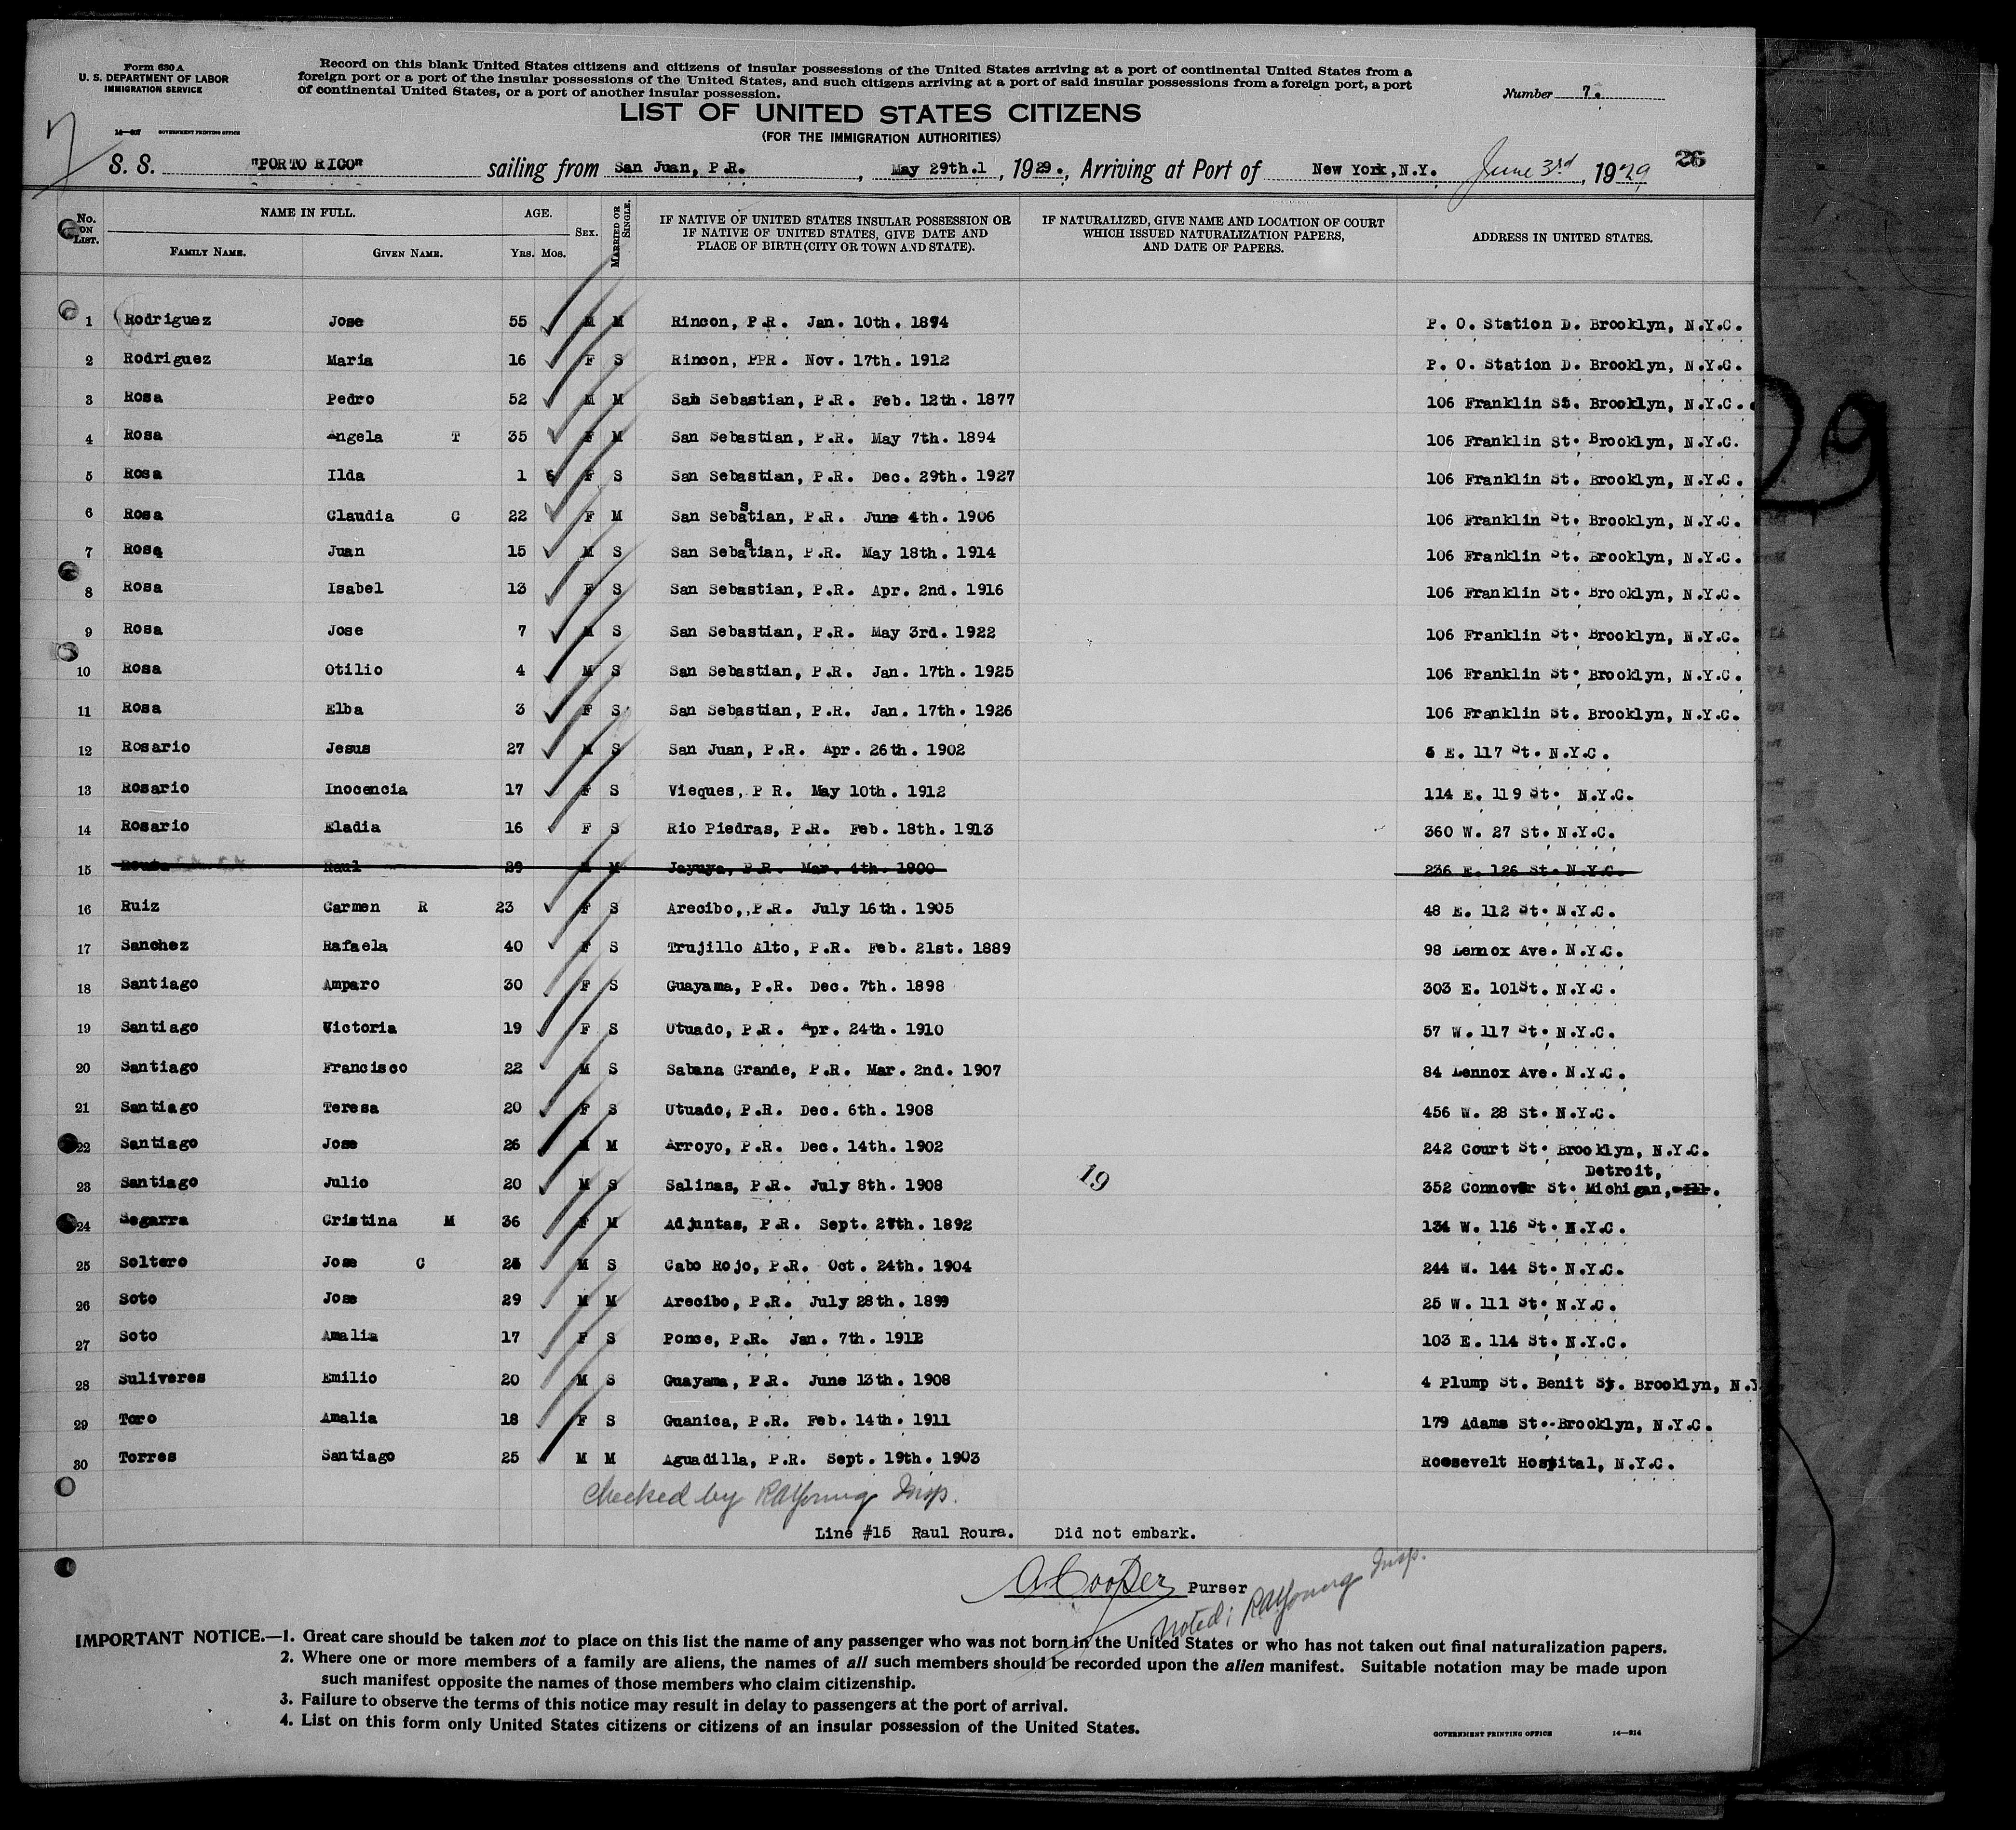 Form 630 A
U. S. DEPARTMENT OF LABOR
IMMIGRATION SERVICE
14—407 GOVERNMENT PRINTING OFFICE
Record on this blank United States citizens and citizens of insular possessions of the United States arriving at a port of continental United States from a
foreign port or a port of the insular possessions of the United States, and such citizens arriving at a port of said insular possessions from a foreign port, a port
of continental United States, or a port of another insular possession.
Number 7.
LIST OF UNITED STATES CITIZENS
(FOR THE IMMIGRATION AUTHORITIES)
7
S. S. "PORTO RICO" sailing from San Juan, P.R. , May 29th.1 , 1929., Arriving at Port of New York,N.Y. June 3rd , 1929 26
No. ON LIST. NAME IN FULL. AGE. SEX. MARRIED OR SINGLE. IF NATIVE OF UNITED STATES INSULAR POSSESSION OR IF NATIVE OF UNITED STATES, GIVE DATE AND PLACE OF BIRTH (CITY OR TOWN AND STATE). IF NATURALIZED, GIVE NAME AND LOCATION OF COURT WHICH ISSUED NATURALIZATION PAPERS, AND DATE OF PAPERS. ADDRESS IN UNITED STATES.
FAMILY NAME. GIVEN NAME. YRS. MOS.
1 Rodriguez Jose 55 M M Rincon, P.R. Jan. 10th. 1894 P. O. Station D. Brooklyn, N.Y.C.
2 Rodriguez Maria 16 F S Rincon, PPR. Nov. 17th. 1912 P. O. Station D. Brooklyn, N.Y.C.
3 Rosa Pedro 52 M M San Sebastian, P.R. Feb. 12th. 1877 106 Franklin St. Brooklyn, N.Y.C.
4 Rosa Angela T 35 F M San Sebastian, P.R. May 7th. 1894 106 Franklin St. Brooklyn, N.Y.C.
5 Rosa Ilda 1 6 F S San Sebastian, P.R. Dec. 29th. 1927 106 Franklin St. Brooklyn, N.Y.C.
6 Rosa Claudia C 22 F M San Sebastian, P.R. June 4th. 1906 106 Franklin St. Brooklyn, N.Y.C.
7 Rosa Juan 15 M S San Sebastian, P.R. May 18th. 1914 106 Franklin St. Brooklyn, N.Y.C.
8 Rosa Isabel 13 F S San Sebastian, P.R. Apr. 2nd. 1916 106 Franklin St. Brooklyn, N.Y.C.
9 Rosa Jose 7 M S San Sebastian, P.R. May 3rd. 1922 106 Franklin St. Brooklyn, N.Y.C.
10 Rosa Otilio 4 M S San Sebastian, P.R. Jan. 17th. 1925 106 Franklin St. Brooklyn, N.Y.C.
11 Rosa Elba 3 F S San Sebastian, P.R. Jan. 17th. 1926 106 Franklin St. Brooklyn, N.Y.C.
12 Rosario Jesus 27 M S San Juan, P.R. Apr. 26th. 1902 5 E. 117 St. N.Y.C.
13 Rosario Inocencia 17 F S Vieques, P R. May 10th. 1912 114 E. 119 St. N.Y.C.
14 Rosario Eladia 16 F S Rio Piedras, P.R. Feb. 18th. 1913 360 W. 27 St. N.Y.C.
15 Roura Raul 29 M M Jayuya, P.R. Mar. 4th. 1900 236 E. 126 St. N.Y.C.
16 Ruiz Carmen R 23 F S Arecibo,,P.R. July 16th. 1905 48 E. 112 St. N.Y.C.
17 Sanchez Rafaela 40 F S Trujillo Alto, P.R. Feb. 21st. 1889 98 Lennox Ave. N.Y.C.
18 Santiago Amparo 30 F S Guayama, P.R. Dec. 7th. 1898 303 E. 101St. N.Y.C.
19 Santiago Victoria 19 F S Utuado, P.R. Apr. 24th. 1910 57 W. 117 St. N.Y.C.
20 Santiago Francisco 22 M S Sabana Grande, P.R. Mar. 2nd. 1907 84 Lennox Ave. N.Y.C.
21 Santiago Teresa 20 F S Utuado, P.R. Dec. 6th. 1908 456 W. 28 St. N.Y.C.
22 Santiago Jose 26 M M Arroyo, P.R. Dec. 14th. 1902 242 Court St. Brooklyn, N.Y.C.
Detroit,
23 Santiago Julio 20 M S Salinas, P.R. July 8th. 1908 19 352 Connover St. Michigan, Ill.
24 Segarra Cristina M 36 F M Adjuntas, P.R. Sept. 27th. 1892 134 W. 116 St. N.Y.C.
25 Soltero Jose C 24 M S Cabo Rojo, P.R. Oct. 24th. 1904 244 W. 144 St. N.Y.C.
26 Soto Jose 29 M M Arecibo, P.R. July 28th. 1899 25 W. 111 St. N.Y.C.
27 Soto Amalia 17 F S Ponce, P.R. Jan. 7th. 1912 103 E. 114 St. N.Y.C.
28 Suliveres Emilio 20 M S Guayama, P.R. June 13th. 1908 4 Plump St. Benit St. Brooklyn, N.Y
29 Toro Amalia 18 F S Guanica, P.R. Feb. 14th. 1911 179 Adams St..Brooklyn, N.Y.C.
30 Torres Santiago 25 M M Aguadilla, P.R. Sept. 19th. 1903 Roosevelt Hospital, N.Y.C.
29
Checked by RAYoung Insp.
Line #15 Raul Roura. Did not embark.
A. Cooper Purser
Noted; RAYoung Insp.
IMPORTANT NOTICE.—1. Great care should be taken not to place on this list the name of any passenger who was not born in the United States or who has not taken out final naturalization papers.
2. Where one or more members of a family are aliens, the names of all such members should be recorded upon the alien manifest. Suitable notation may be made upon
such manifest opposite the names of those members who claim citizenship.
3. Failure to observe the terms of this notice may result in delay to passengers at the port of arrival.
4. List on this form only United States citizens or citizens of an insular possession of the United States.
GOVERNMENT PRINTING OFFICE 14—214